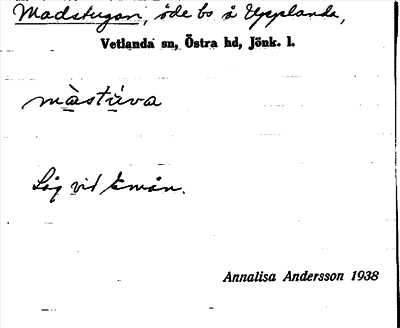 Madstugan, öde bs å Upplanda,
Vetlanda sn, Östra hd, Jönk. l.
màstúva
Låg vid Emån.
Annalisa Andersson 1938